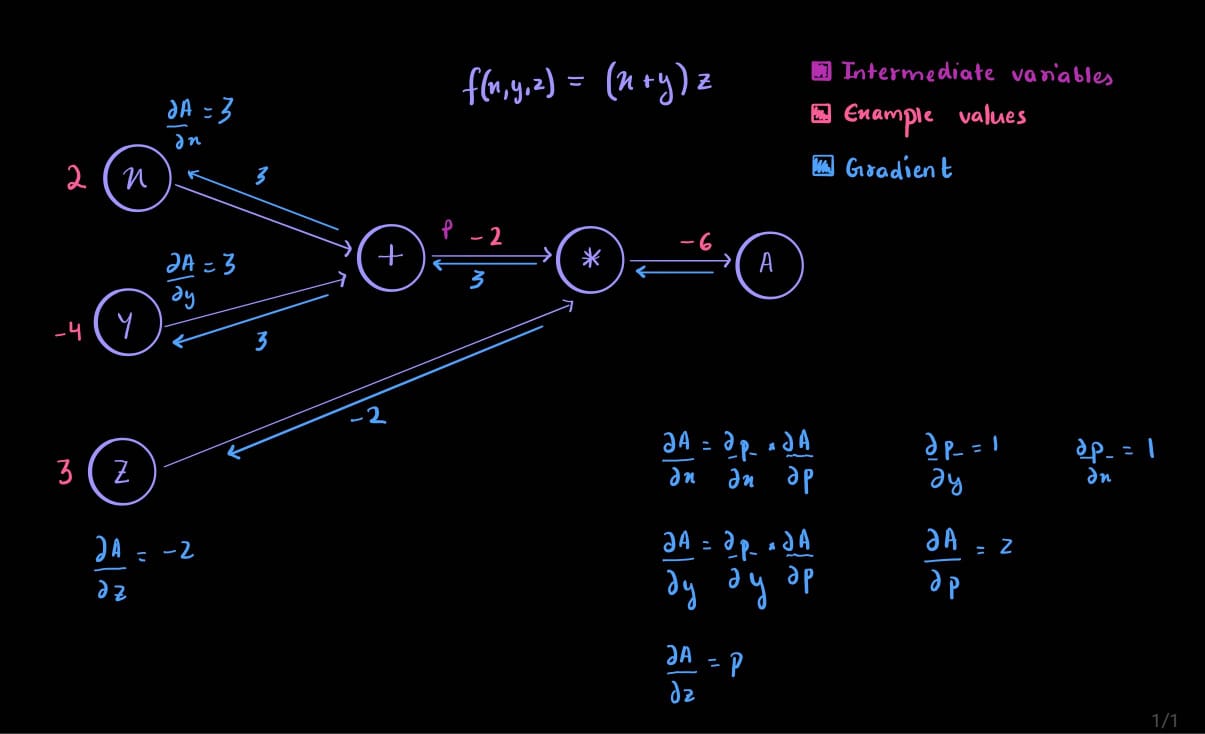 f(x,y,z) = (x+y) z
Intermediate variables
Example values
Gradient
∂A/∂x = 3
2
x
3
P
-2
-6
+
*
A
3
∂A/∂y = 3
-4
y
3
-2
3
z
∂A/∂z = -2
∂A/∂x = ∂p/∂x * ∂A/∂p
∂p/∂y = 1
∂p/∂x = 1
∂A/∂y = ∂p/∂y * ∂A/∂p
∂A/∂p = z
∂A/∂z = p
1/1